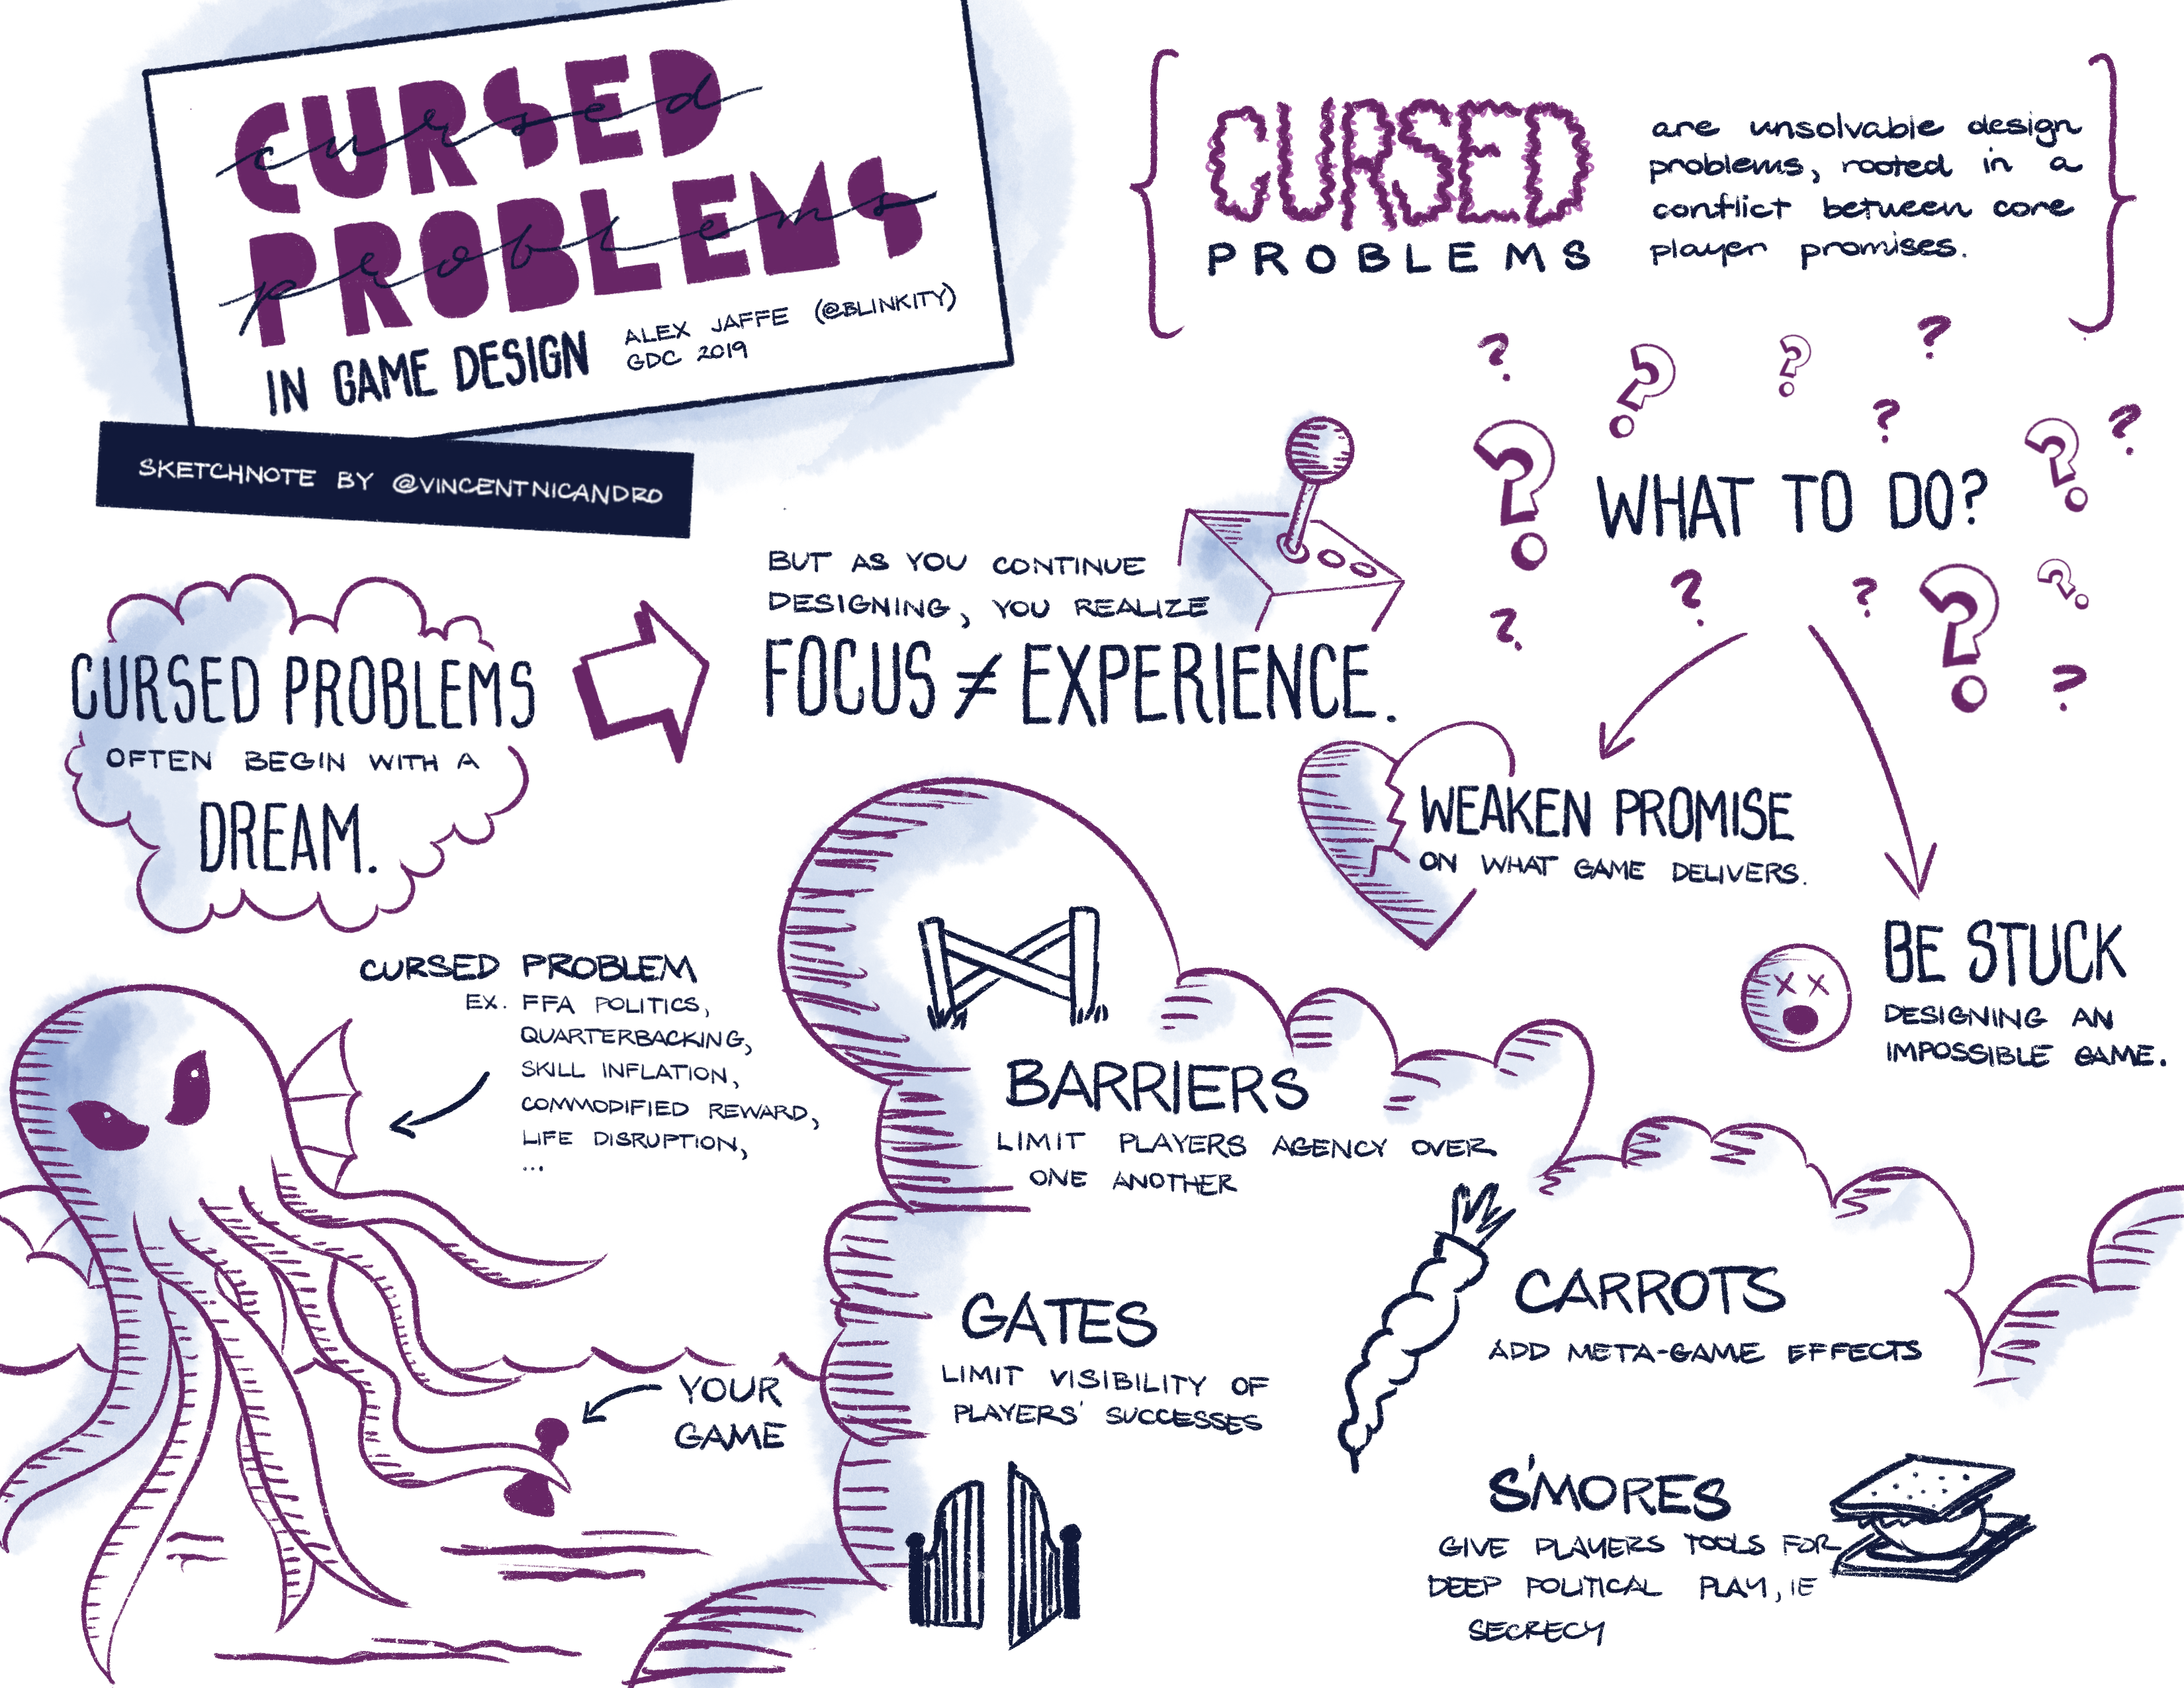 CURSED
cursed
PROBLEMS
problems
IN GAME DESIGN
ALEX JAFFE (@BLINKITY)
GDC 2019
SKETCHNOTE BY @VINCENTNICANDRO
CURSED
PROBLEMS
are unsolvable design
problems, rooted in a
conflict between core
player promises.
CURSED PROBLEMS
OFTEN BEGIN WITH A
DREAM.
BUT AS YOU CONTINUE
DESIGNING, YOU REALIZE
FOCUS ≠ EXPERIENCE.
? ? ? ?
? ? ? ?
WHAT TO DO?
? ? ? ? ?
? ?
WEAKEN PROMISE
ON WHAT GAME DELIVERS.
BE STUCK
DESIGNING AN
IMPOSSIBLE GAME.
CURSED PROBLEM
EX. FFA POLITICS,
QUARTERBACKING,
SKILL INFLATION,
COMMODIFIED REWARD,
LIFE DISRUPTION,
...
YOUR
GAME
BARRIERS
LIMIT PLAYERS AGENCY OVER
ONE ANOTHER
GATES
LIMIT VISIBILITY OF
PLAYERS' SUCCESSES
CARROTS
ADD META-GAME EFFECTS
S'MORES
GIVE PLAYERS TOOLS FOR
DEEP POLITICAL PLAY, IE
SECRECY